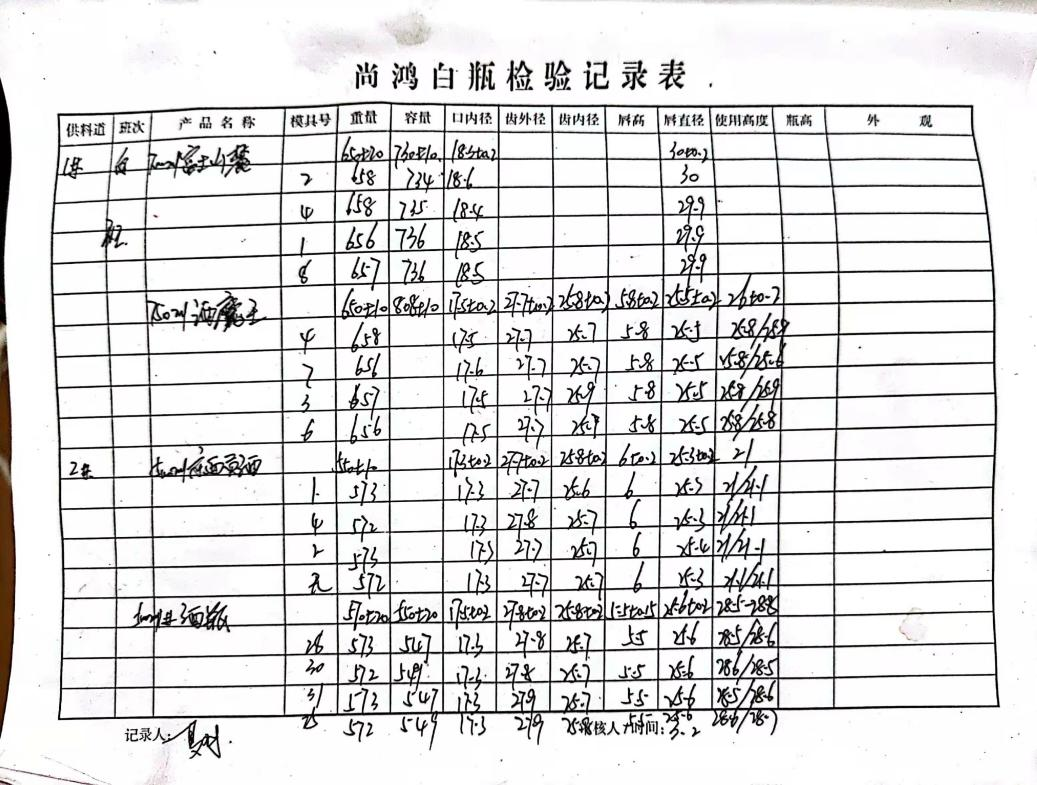 尚鸿白瓶检验记录表
供料道 班次 产品名称 模具号 重量 容量 口内径 齿外径 齿内径 唇高 唇直径 使用高度 瓶高 外观
1# 白 700ml富士山 650±20 730±10 18.5±0.2 30±0.2
2 658 734 18.6 30
4 658 735 18.4 29.9
班 1 656 736 18.5 29.9
8 657 736 18.5 29.9
750ml海魔王 650±10 808±10 17.5±0.2 27.7±0.2 25.8±0.2 5.8±0.2 25.5±0.2 26±0.2
4 658 17.5 27.7 25.7 5.8 25.5 25.8/25.9
7 656 17.6 27.7 25.7 5.8 25.5 25.8/25.6
3 657 17.5 27.7 25.9 5.8 25.5 25.8/25.9
6 656 17.5 27.7 25.9 5.8 25.5 25.8/25.8
2# 550±10 17.3±0.2 27.7±0.2 25.8±0.2 6±0.2 25.3±0.2 21
1 573 17.3 27.7 25.6 6 25.3 21/21.1
4 572 17.3 27.8 25.7 6 25.3 21/21.1
2 573 17.3 27.7 25.7 6 25.4 21/21.1
无 572 17.3 27.7 25.7 6 25.3 21.1/21.1
570±20 550±20 17.5±0.2 27.8±0.2 25.8±0.2 25.6±0.2 28.5-28.8
26 573 547 17.3 27.8 25.7 5.5 25.6 28.5/28.6
30 572 549 17.3 27.8 25.7 5.5 25.6 28.6/28.5
31 573 547 17.3 27.9 25.7 5.5 25.6 28.5/28.6
25 572 549 17.3 27.9 25.8 25.6 28.6/28.7
记录人: 审核人 时间: 3.2